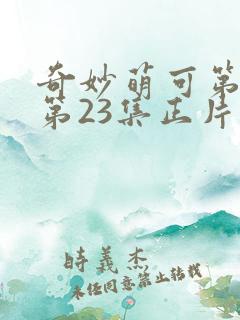 奇妙萌可第
第23集正片
時義杰
未经同意禁止转载